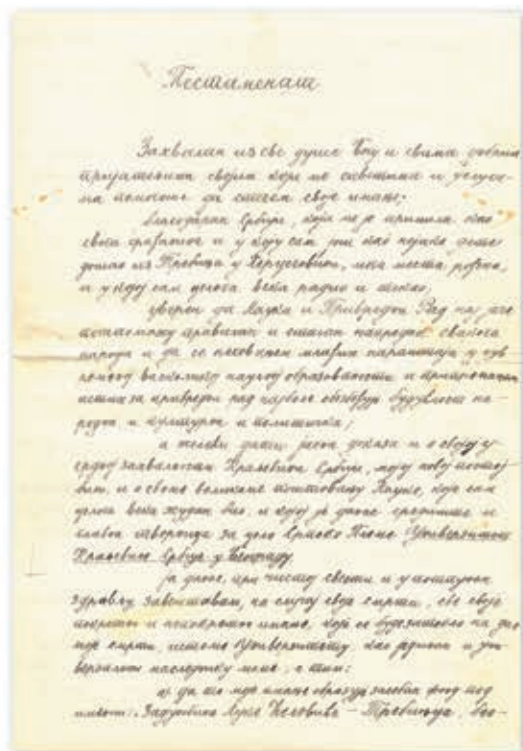 Тестаменат
Захвалан из све душе Богу и свима добрим
пријатељима својим који ме саветима и услуга-
ма помогоше да стечем своје имање;
благодаран Србији, која ме је примила као
свога грађанина и у коју сам још као нејако дете
дошао из Требиња у Херцеговини, мога места рођења,
и у којој сам целога века радио и текао;
уверен да Наука и Привредни Рад најјаче
потпомажу правилан и сталан напредак свакога
народа и да се поколења младих нараштаја
помоћу научног образованости и
за привредни рад најбоље обезбеђује будућност на-
родна и културна и политичка;
а желећи дати јасна доказа и о својој
захвалности Краљевини Србији, мојој новој постој-
бини, и о своме великом поштовању Науке, које сам
целог века жудан био, и којој је данас средиште и
главна за цело Српско Племе Универзитет
Краљевине Србије у Београду
ја данас, при чистој свести и у потпуном
здрављу завештавам, на случај своје смрти, све своје
покретно и непокретно имање, које се буде затекло на дан
моје смрти, истоме Универзитету, као једином и уни-
верзалном наследнику моме, с тим:
а) да то моје имање образује засебан фонд под
именом: Задужбина Луке Ћеловића – Требињца, бео-